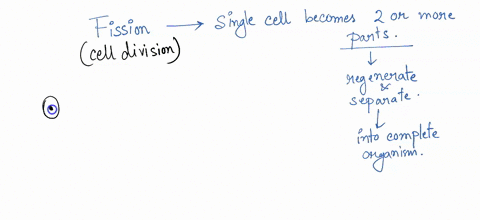 Fission → Single cell becomes 2 or more
(cell division) parts.
↓
regenerate
&
separate.
↓
into complete
organism.